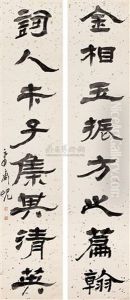 金相玉振方之篇翰
詞人才子集其清英